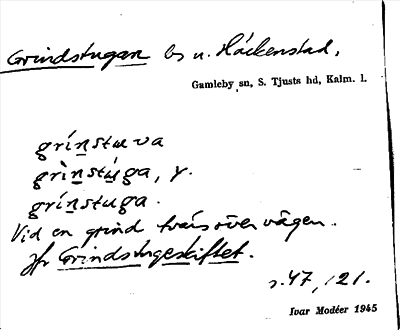 Grindstugan bs u. Häckenstad,
Gamleby sn, S. Tjusts hd, Kalm. l.
grínstuva
grìnstúga, y.
grínstuga.
Vid en grind tvärsöver vägen.
Jfr Grindstugeskiftet.
s. 47, 121.
Ivar Modéer 1945